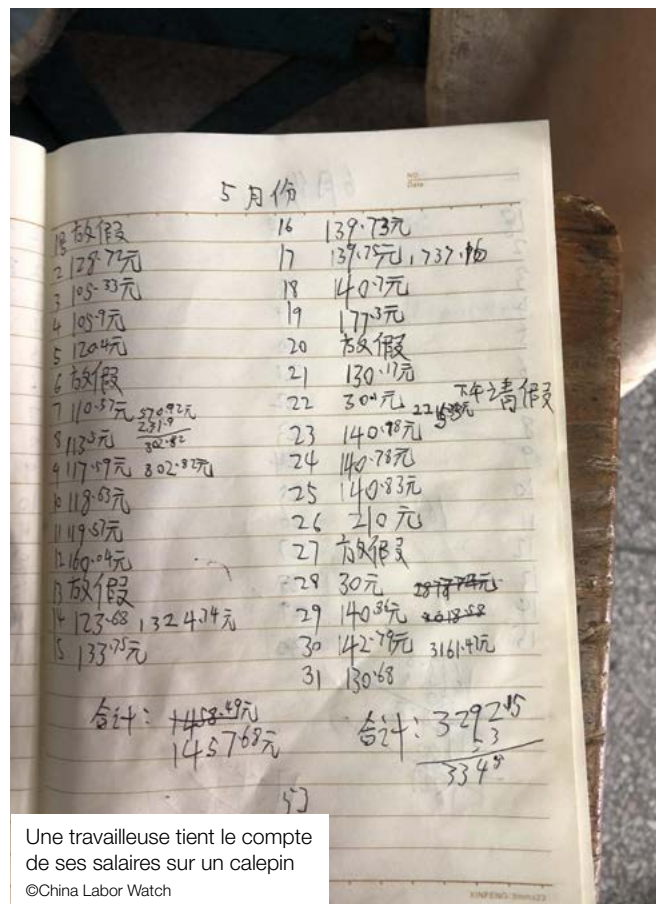 NO.
Date
5月份
1号放假
2 128.72元
3 105.33元
4 105.9元
5 120.4元
6 放假
7 110.57元 570.92元
231.9
8 113.5元 802.82
9 117.59元 802.82元
10 118.63元
11 119.57元
12 160.04元
13 放假
14 123.68 1324.74元
15 133.75元
合计: 1458.49元
1457.68元
16 139.73元
17 139.75元, 1737.16
18 140.7元
19 177.3元
20 放假
21 130.17元
22 30元 下午请假
23 140.98元
24 140.78元
25 140.83元
26 210元
27 放假
28 30元
29 140.36元
30 142.79元 3161.47元
31 130.68
合计: 3292.15
53
334
53
Une travailleuse tient le compte
de ses salaires sur un calepin
©China Labor Watch